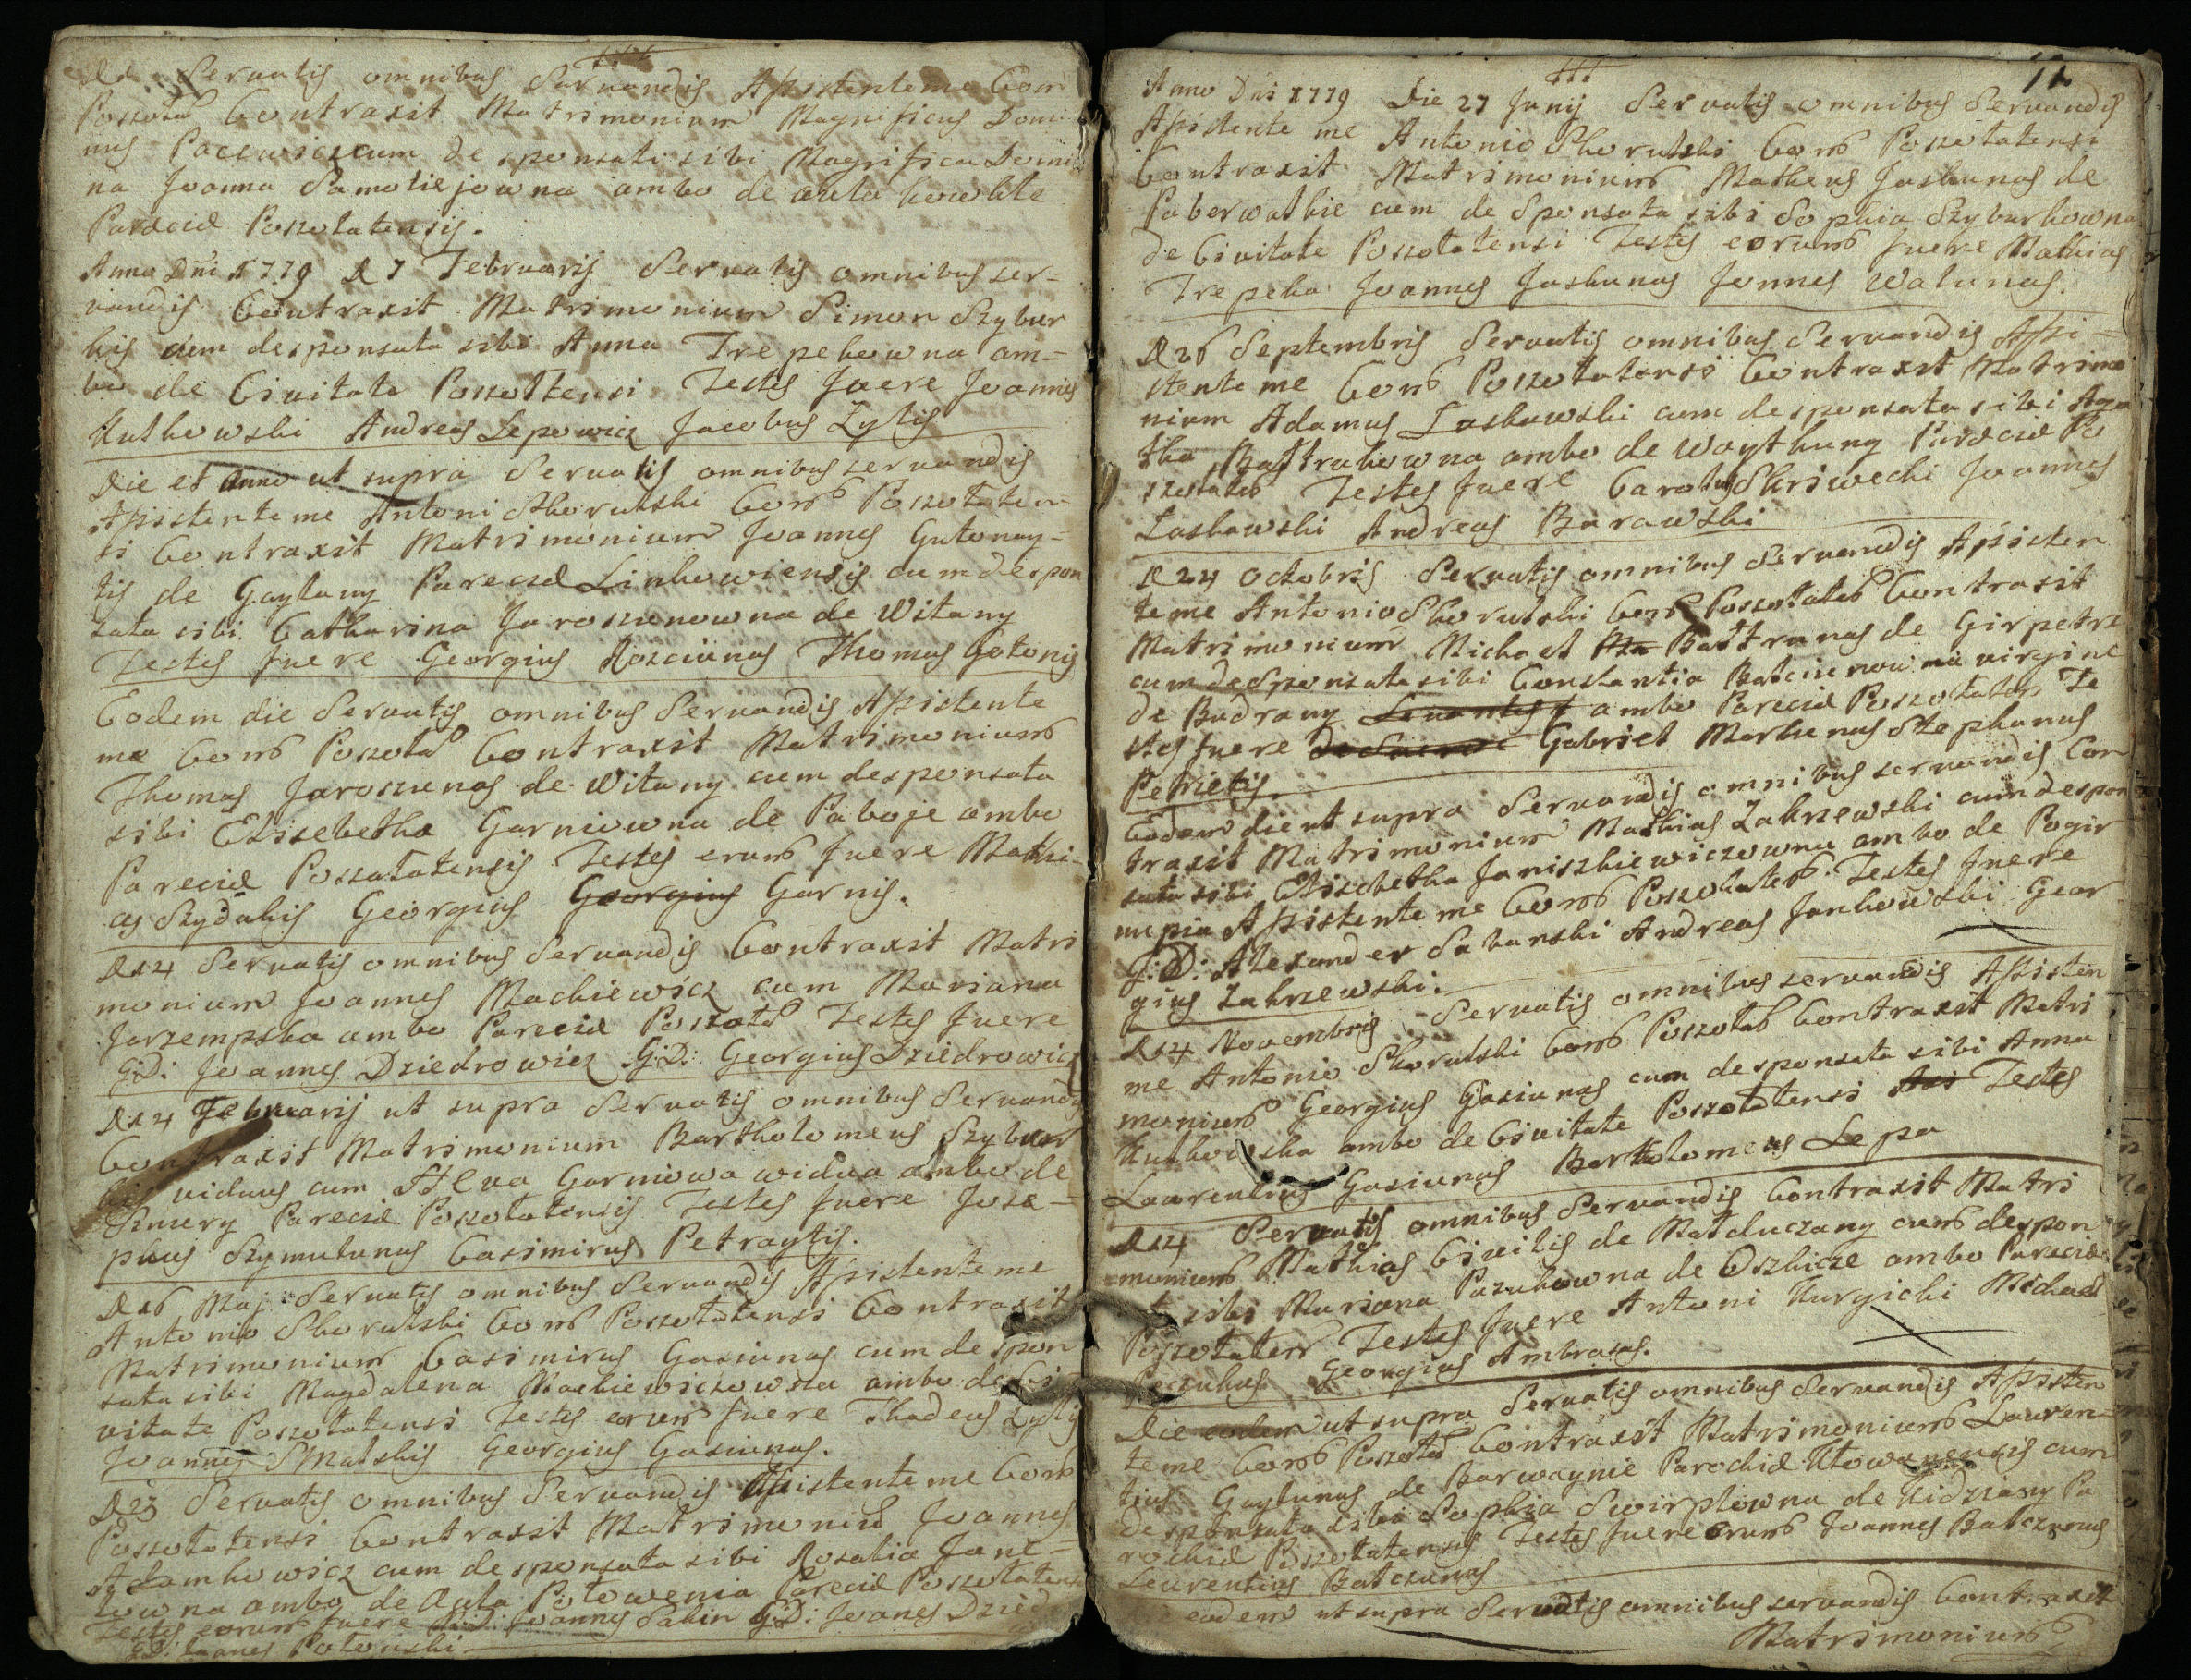 D 1 Servatis omnibus Servandis Assistente me Com
Poszotas Contraxit Matrimonium Magnificus Domi
nus Pacewicz cum desponsati sibi Magnifica Domi
na Joanna ambo de aula
Paraeciae Poszotatensis.
Anno Dni 1779 D 7 Februarij Servatis omnibus ser=
vandis Contraxit Matrimonium Simon Szybur
kis cum desponsata sibi Anna Trepekowna am=
bo de Civitate Poszottensi Testes fuere Joannes
Kutkowski Andreas Lepowicz Jacobus Zylis
Die et Anno ut supra Servatis omnibus servandis
Assistente me Antoni Skorulski Com Poszotaten
si Contraxit Matrimonium Joannes Gutonay=
tis de Gaytany Pareciae Linkowiensis cum despon
sata sibi Catharina Jaroszunowna de Witany
Testes fuere Georgius Rosciunas Thomas Gotonis
Eodem die Servatis omnibus Servandis Assistente
me Com Poszotas Contraxit Matrimonium
Thomas Jaroszunas de Witany cum desponsata
sibi Elisebetha Garniowna de Paboje ambo
Pareciae Poszotatensis Testes erum fuere Mathi=
as Szydakis Georgius Georgius Garnis.
D 14 Servatis omnibus Servandis Contraxit Matri
monium Joannes Mackiewicz cum Mariana
Jarzempska ambo Pareciae Poszotas Testes fuere
G:D: Joannes Dziedrowicz G:D: Georgius Dziedrowicz
D 14 Februarij ut supra Servatis omnibus Servandis
Contraxit Matrimonium Bartholomeus Szybur
kis viduus cum Helena Garniowa vidua ambo de
Pareciae Poszotatensis Testes fuere Jose=
phus Szymulunas Casimirus Petraytis.
D 16 Maj Servatis omnibus Servandis Assistente me
Antonio Skorulski Com Poszotatensi Contraxit
Matrimonium Casimirus Gasiunas cum despon
sata sibi Magdalena Mackiewiczowna ambo de Ci
vitate Poszotatensi Testes eorum fuere Thadeus Zylis
Joannes Georgius Gasiunas.
D 23 Servatis omnibus Servandis Assistente me Com
Poszotatensi Contraxit Matrimoniu Joannes
Adamkowicz cum desponsata sibi Rosalia Jane=
towna ambo de Aula Potowenia Pareciae Poszotatens
Testes eorum fuere G:D: Joannes Sakin G:D: Joanes Dzied
G:D: Joanes Potowski
12
Anno Dni 1779 Die 27 Junij Servatis omnibus Servandis
Assistente me Antonio Skorulski Com Poszotatensi
Contraxit Matrimonium Matheus Jaskunas de
Paberwalkie cum desponsata sibi Sophia Szyburkowna
de Civitate Poszotatensi Testes eorum fuere Mathias
Trepeka Joannes Jaskunas Jonnes Walunas.
D 26 Septembris Servatis omnibus Servandis Assi=
stente me Com Poszotatensi Contraxit Matrimo
nium Adamus Laskowski cum desponsata sibi Aga
tha ambo de Woytkuny Paraeciae Po
szotates Testes fuere Carolus Skriwecki Joannes
Laskowski Andreas Barawski
D 24 Octobris Servatis omnibus Servandis Assisten
te me Antonio Skorulski Com Poszotates Contraxit
Matrimonium Michael Ma Battranas de Girpetre
cum desponsata sibi Constantia Batciunowna virgine
de Budrany ambo Pareciae Poszotaten Te
stes fuere Gabriel Markunas Stephanus
Petrietis.
Eodem die ut supra Servandis omnibus servandis Con
traxit Matrimonium Mathias Zakrzewski cum despon
sata sibi Elisebetha Janiszkiewiczowna ambo de Pogir
nupia Assistente me Com Poszotates. Testes fuere
G:D: Alexander Sabanski Andreas Jankowski Geor
gius Zakrzewski.
D 14 Novembris Servatis omnibus servandis Assisten
me Antonio Skorulski Com Poszotas Contraxit Matri
monium Georgius Gasiunas cum desponsata sibi Anna
Kutkowska ambo de Civitate Poszotatensi Testes
Laurentius Gasiunas Bartolomeus Lepa
D 14 Servatis omnibus Servandis Contraxit Matri
monium Mathias Civilis de Matduczany cum despon
sibi Mariana Pazukowna de Oszkicze ambo Pareciae
Poszotaten Testes fuere Antoni Kurgicki Michael
Pazukas Georgius Ambrasas.
Die eodem ut supra Servatis omnibus Servandis Assisten
te me Com Poszotas Contraxit Matrimonium Lauren=
tius Gaytunas de Barwaynie Parochiae cum
desponsata sibi Sophia Swirptowna de Kidziany Pa
rochiae Poszotatensis Testes fuere erum Joannes Batczunas
Laurentius Batczunas
eodem ut supra Servatis omnibus servandis Contraxit
Matrimonium